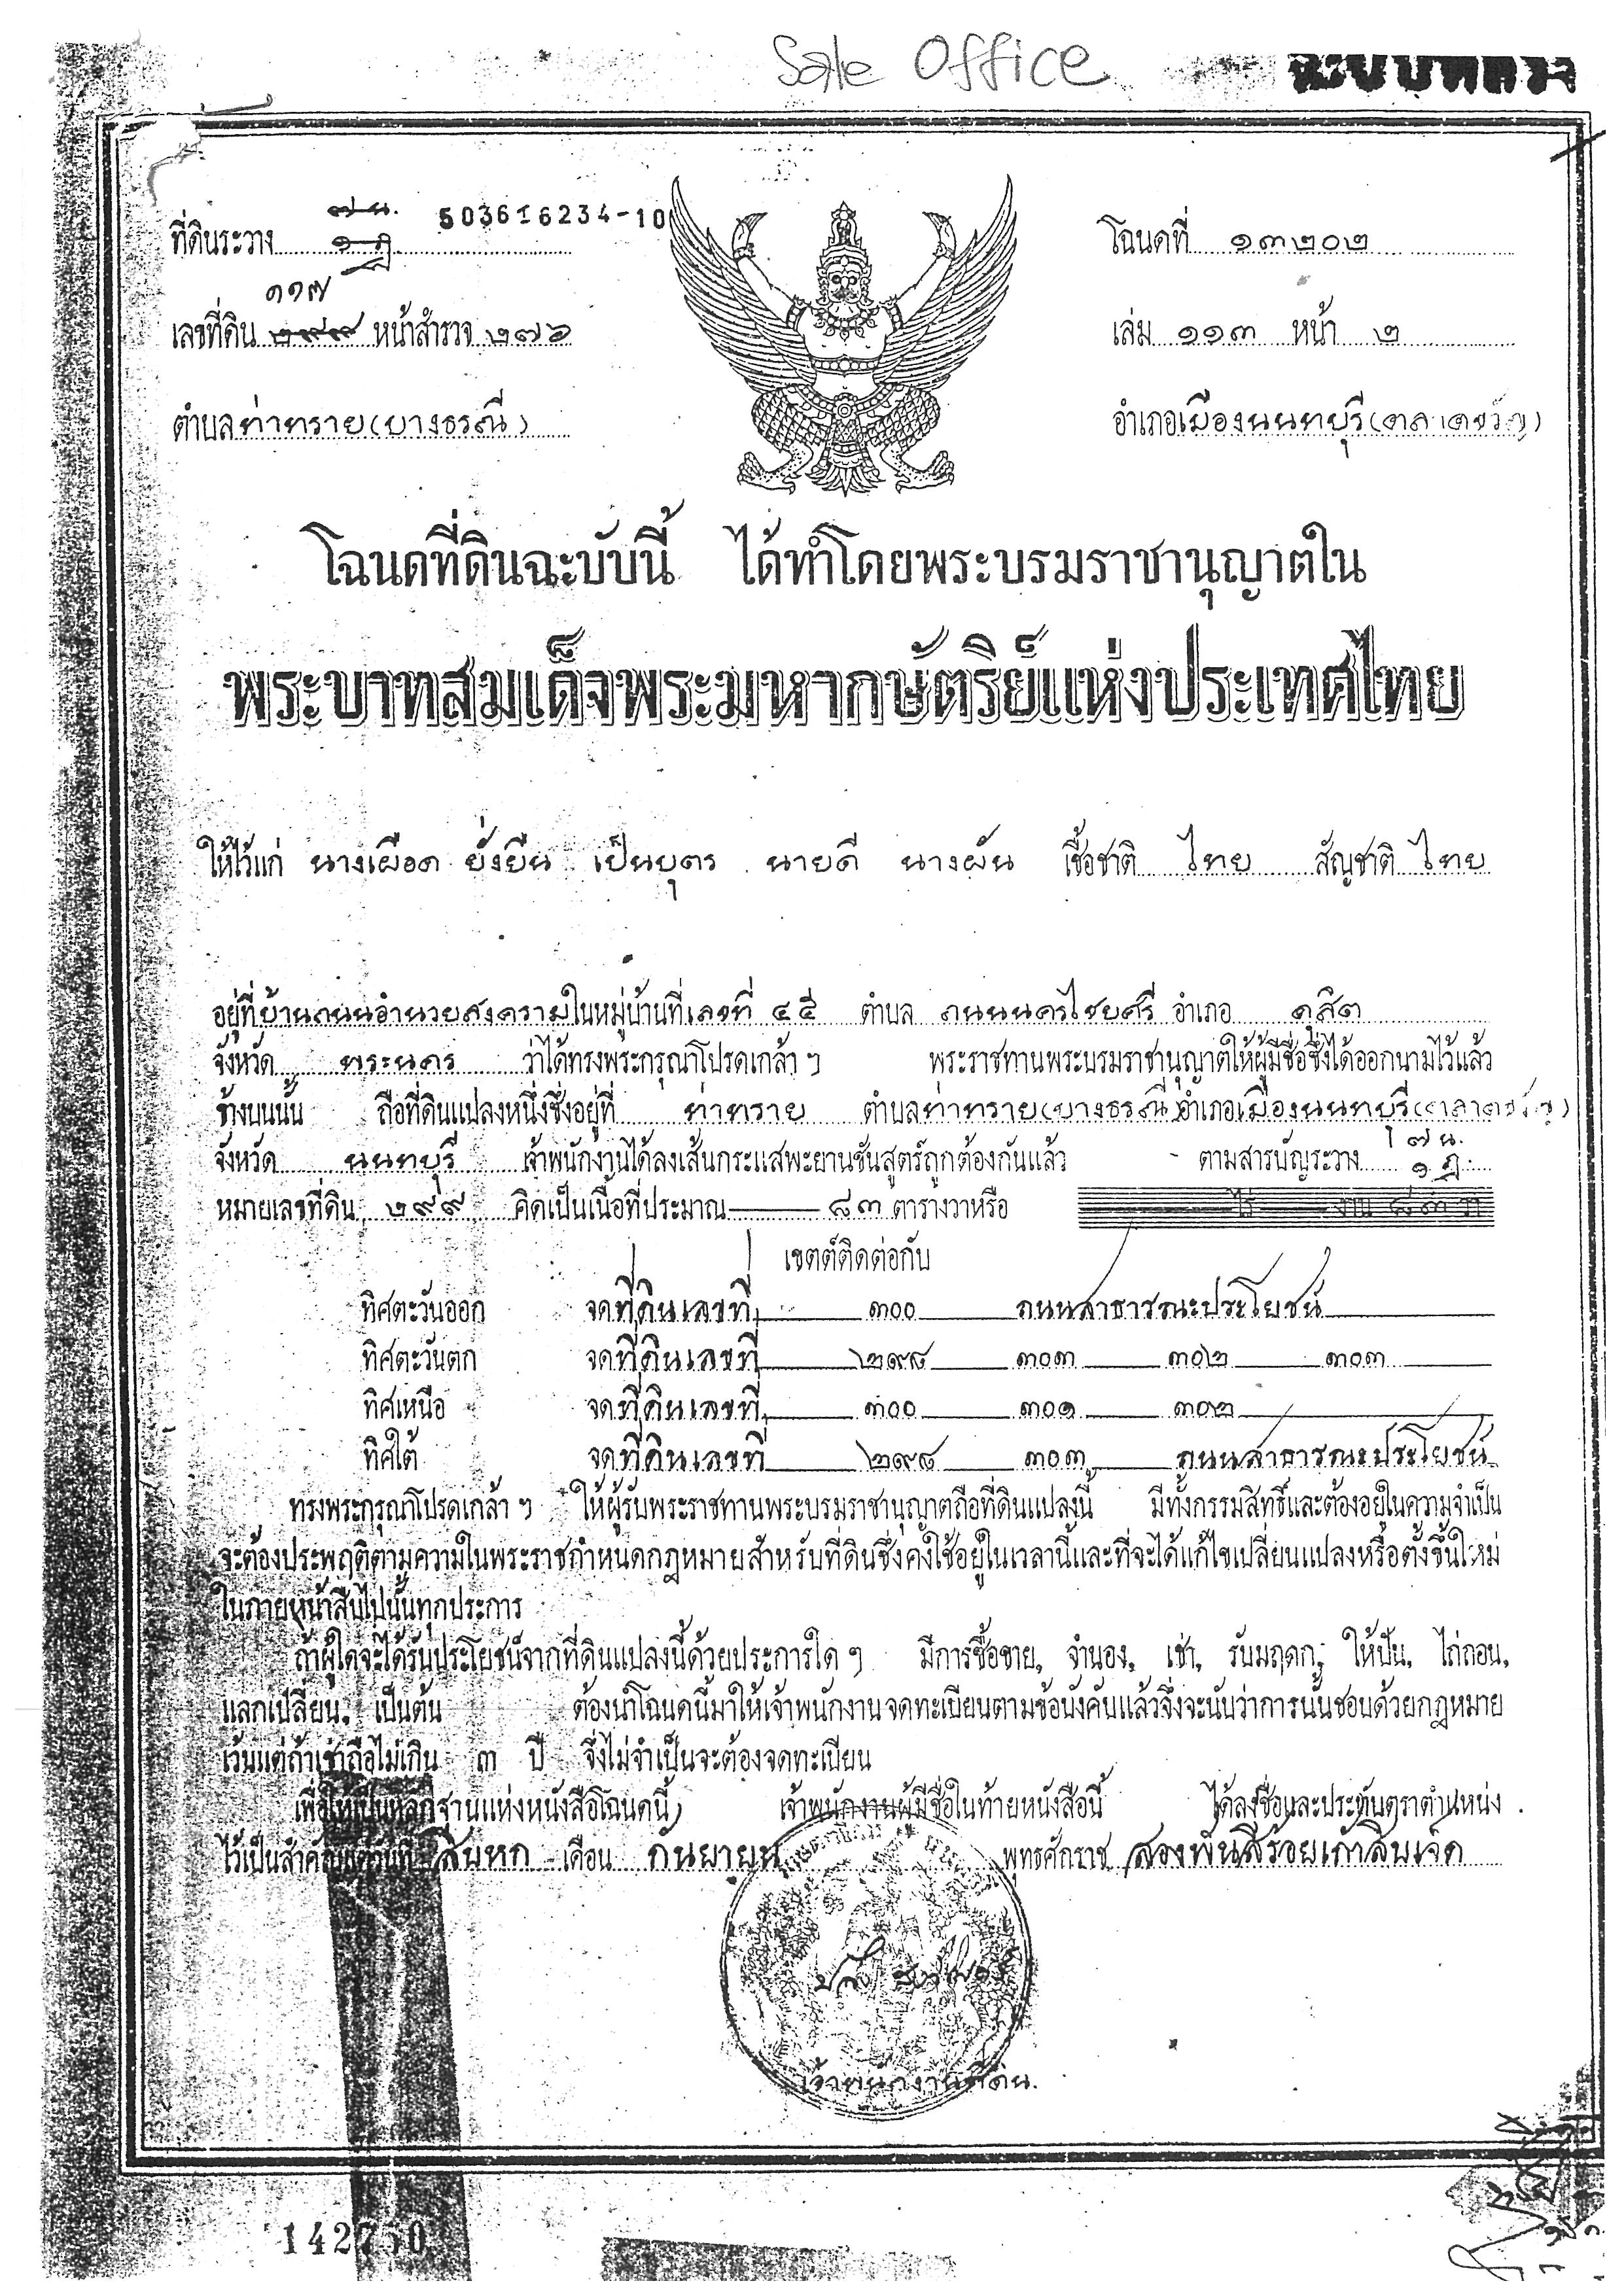 Sale Office
๗ น. 5036I6234-10
ที่ดินระวาง ๑ ฎ โฉนดที่ ๑๓๒๐๒
๑๑๗
เลขที่ดิน ๒๙๙ หน้าสำรวจ ๒๗๖ เล่ม ๑๑๓ หน้า ๒
ตำบล ท่าทราย (บางธรณี) อำเภอ เมืองนนทบุรี (ตลาดขวัญ)
โฉนดที่ดินฉะบับนี้ ได้ทำโดยพระบรมราชานุญาตใน
พระบาทสมเด็จพระมหากษัตริย์แห่งประเทศไทย
ให้ไว้แก่ นางเผือด ยั่งยืน เป็นบุตร นายดี นางผัน เชื้อชาติ ไทย สัญชาติ ไทย
อยู่ที่ บ้านถนนอำนวยสงคราม ในหมู่บ้านที่ เลขที่ ๔๕ ตำบล ถนนนครไชยศรี อำเภอ ดุสิต
จังหวัด พระนคร ว่าได้ทรงพระกรุณาโปรดเกล้า ฯ พระราชทานพระบรมราชานุญาตให้ผู้มีชื่อซึ่งได้ออกนามไว้แล้ว
ข้างบนนั้น ถือที่ดินแปลงหนึ่งซึ่งอยู่ที่ ท่าทราย ตำบล ท่าทราย (บางธรณี) อำเภอ เมืองนนทบุรี (ตลาดขวัญ)
๗ น.
จังหวัด นนทบุรี เจ้าพนักงานได้ลงเส้นกระแสพะยานชันสูตร์ถูกต้องกันแล้ว ตามสารบัญระวาง ๑ ฎ
หมายเลขที่ดิน ๒๙๙ คิดเป็นเนื้อที่ประมาณ ๘๓ ตารางวาหรือ ไร่ งาน ๘๓ วา
เขตต์ติดต่อกับ
ทิศตะวันออก จด ที่ดินเลขที่ ๓๐๐ ถนนสาธารณะประโยชน์
ทิศตะวันตก จด ที่ดินเลขที่ ๒๙๘ ๓๐๓ ๓๐๒ ๓๐๓
ทิศเหนือ จด ที่ดินเลขที่ ๓๐๐ ๓๐๑ ๓๐๒
ทิศใต้ จด ที่ดินเลขที่ ๒๙๘ ๓๐๓ ถนนสาธารณะประโยชน์
ทรงพระกรุณาโปรดเกล้า ฯ ให้ผู้รับพระราชทานพระบรมราชานุญาตถือที่ดินแปลงนี้ มีทั้งกรรมสิทธิ์และต้องอยู่ในความจำเป็น
จะต้องประพฤติตามความในพระราชกำหนดกฎหมายสำหรับที่ดินซึ่งคงใช้อยู่ในเวลานี้และที่จะได้แก้ไขเปลี่ยนแปลงหรือตั้งขึ้นใหม่
ในภายหน้าสืบไปนั้นทุกประการ
ถ้าผู้ใดจะได้รับประโยชน์จากที่ดินแปลงนี้ด้วยประการใด ๆ มีการซื้อขาย, จำนอง, เช่า, รับมฤดก, ให้ปัน, ไถ่ถอน,
แลกเปลี่ยน, เป็นต้น ต้องนำโฉนดนี้มาให้เจ้าพนักงานจดทะเบียนตามข้อบังคับแล้วจึ่งจะนับว่าการนั้นชอบด้วยกฎหมาย
เว้นแต่ถ้าเช่าถือไม่เกิน ๓ ปี จึ่งไม่จำเป็นจะต้องจดทะเบียน
เพื่อให้เป็นหลักฐานแห่งหนังสือโฉนดนี้ เจ้าพนักงานผู้มีชื่อในท้ายหนังสือนี้ ได้ลงชื่อและประทับตราตำแหน่ง
ไว้เป็นสำคัญแต่วันที่ สิบหก เดือน กันยายน พุทธศักราช สองพันสี่ร้อยเก้าสิบเจ็ด
เจ้าพนักงานที่ดิน.